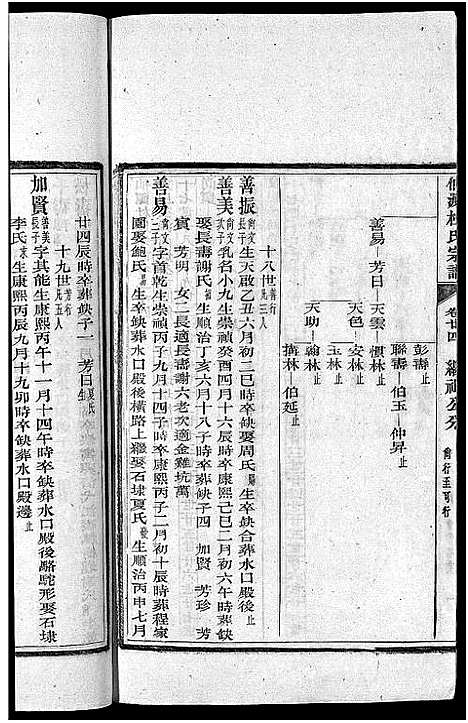 仙源杜氏宗譜
卷廿四
彭壽
聯壽—伯玉—仲昇
善易—芳日—天雲—慎林
天色—安林
玉林
天助—翰林
林—伯延止
十八世善行兄三四人
善振尚文長子生天啟乙丑六月初二巳時卒缺娶周氏生卒缺合葬水口殿後止
善美尚文次子乳名小九生崇禎癸酉四月十六辰時卒康熙己巳二月初六午時葬缺
娶長壽謝氏生順治丁亥六月十八子時卒葬缺子四 加賢 芳珍 芳
賓 芳明 女二長適長壽謝六老次適金雞坑萬
善易尚文三子字首乾生崇禎丙子九月十四子時卒康熙丙子二月初十辰時葬程家
園娶鮑氏葬水口殿後橫路上繼娶石埭夏氏生順治丙申七月
廿四辰時卒葬缺子一 芳日夏氏生
十九世芳行兄五人
加賢善美長子字其能生康熙丙午十一月十四午時卒缺葬水口殿後駱駝形娶石埭
李氏生康熙丙辰九月十九卯時卒缺葬水口殿邊止